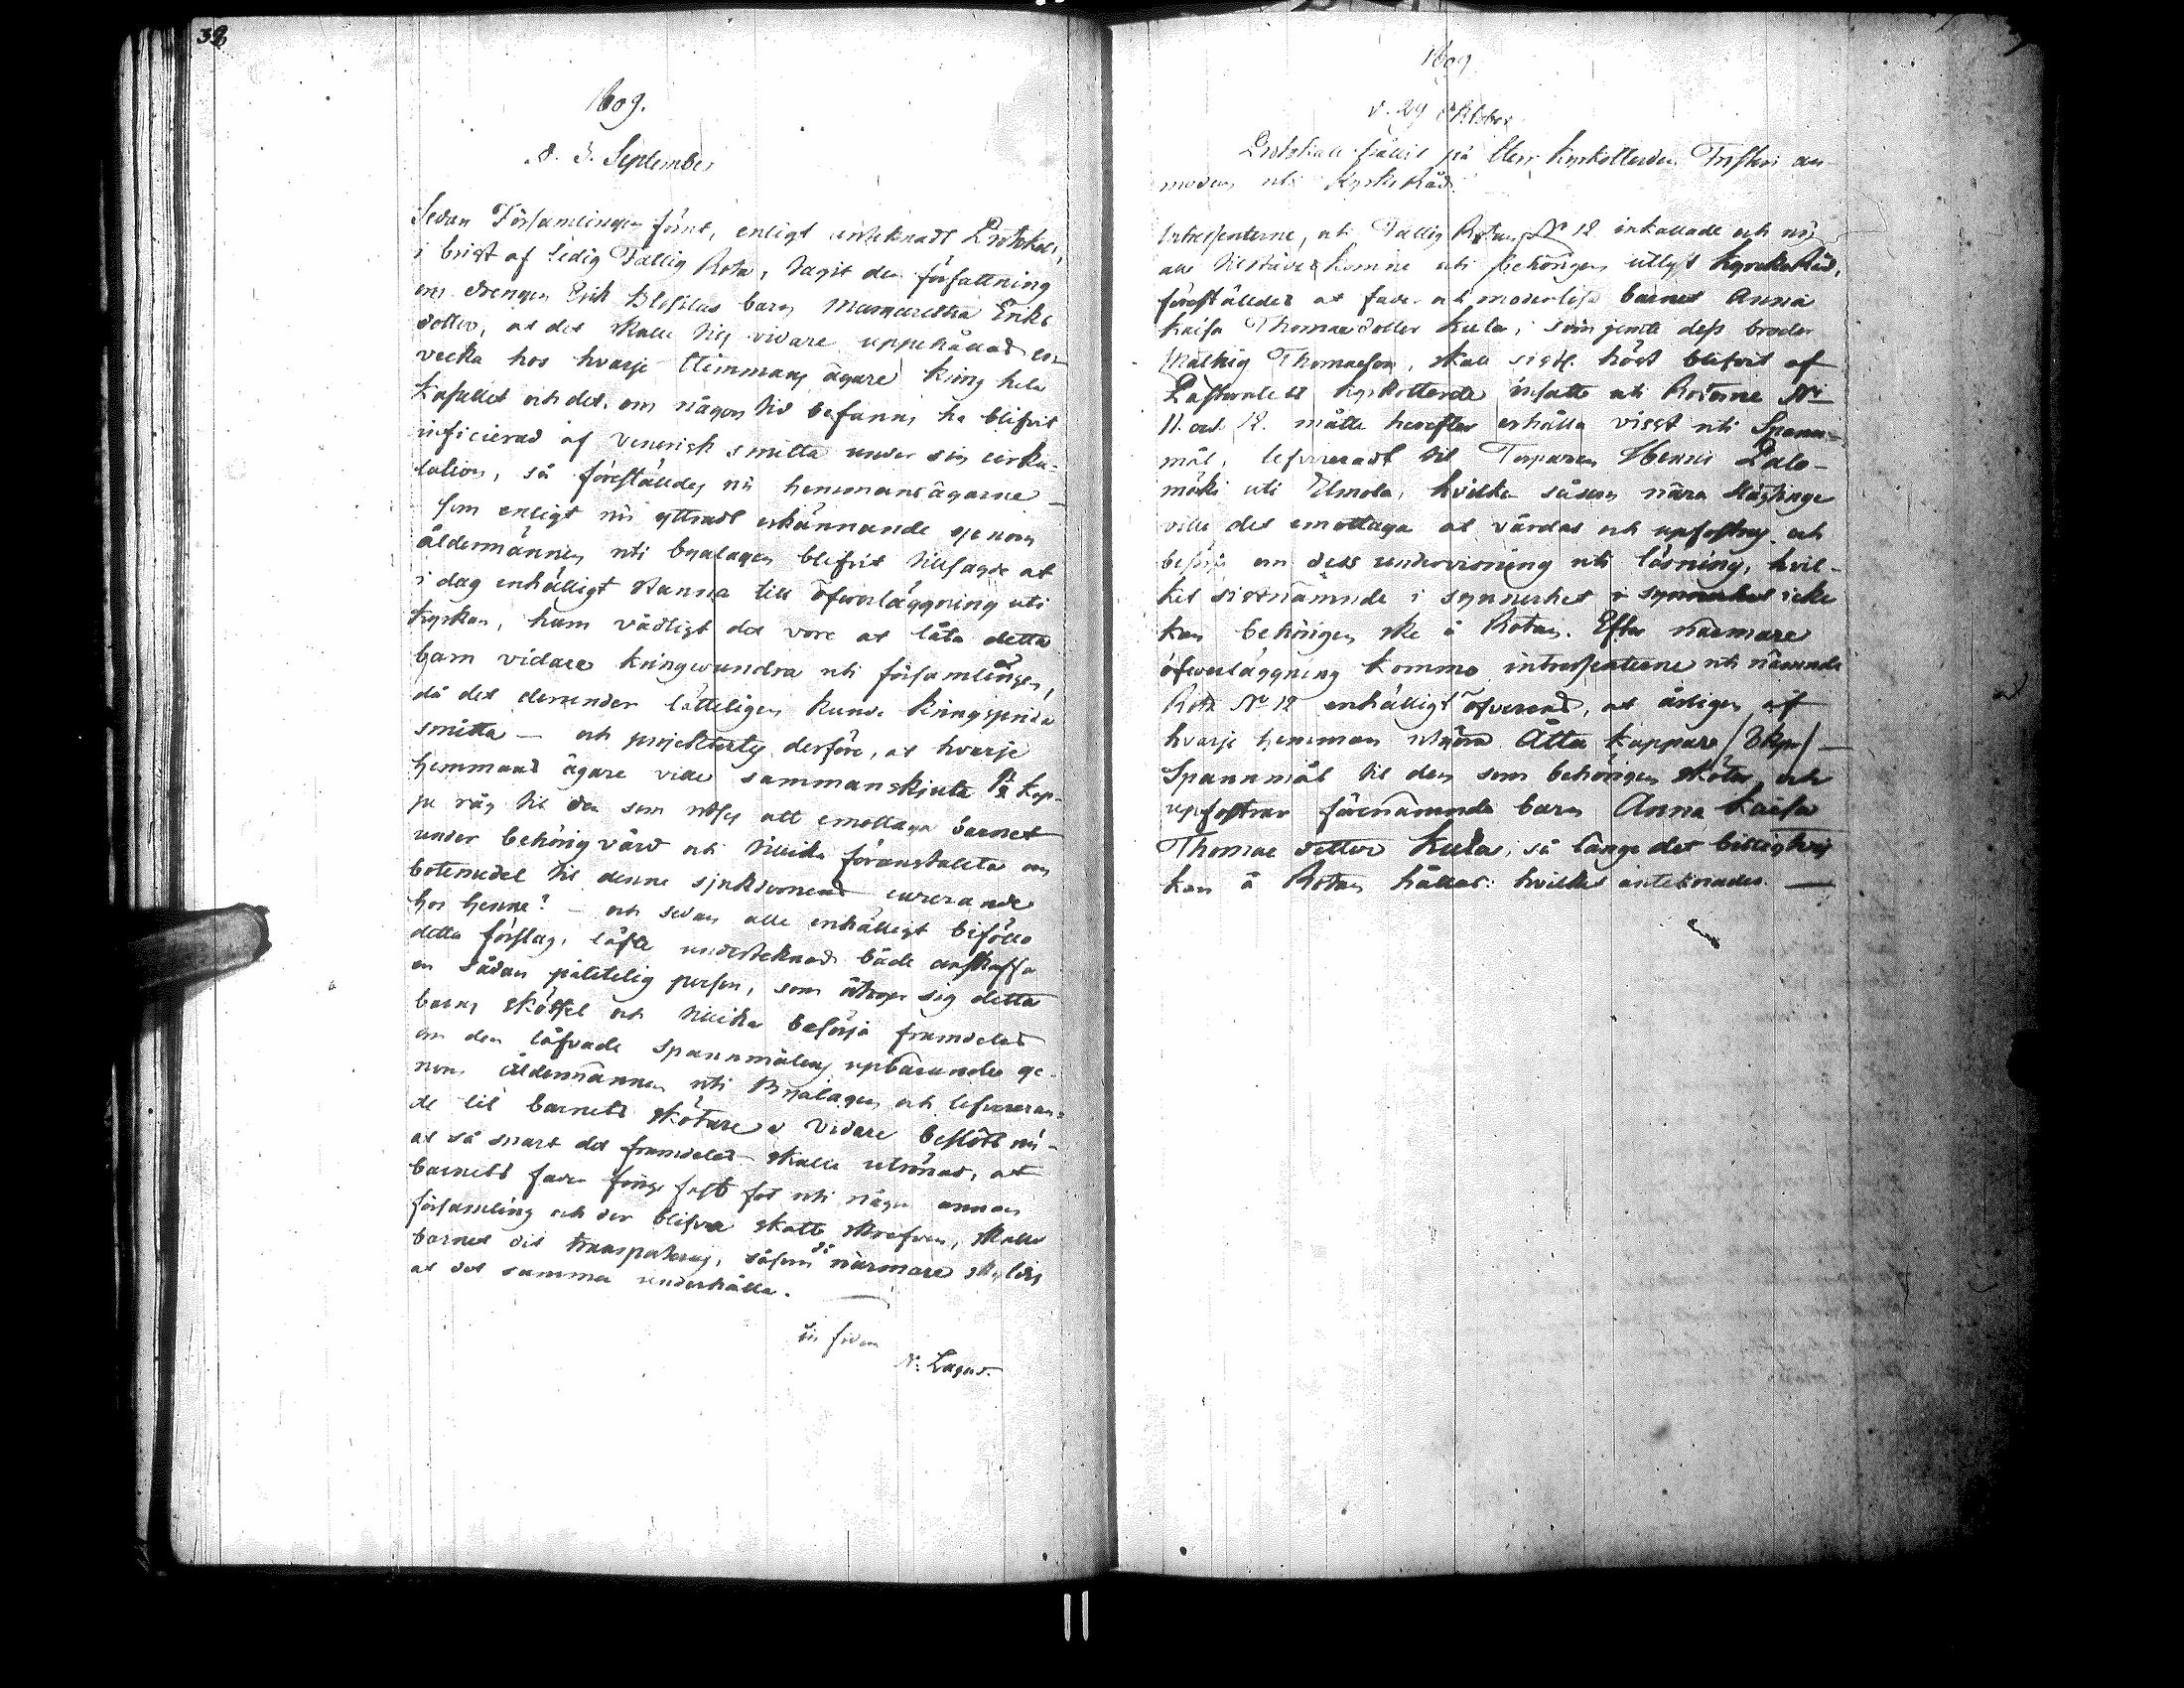 38
1809.
d. 3. September
Sedan Församlingen förut, enligt anteknadt Protokoll,
i brist af ledig Fattig Rota, tagit den författning
om drengen Erik Blefilus barn Margaretha Eriks
dotter, at det skulle till vidare uppehållas en
vecka hos hvarje Hemmans ägare kring hela
Kapellet och det, om någon tid befanns ha blifvit
inficierad af venerisk smitta under sin cirku-
lation, så föreställdes nu hemmansägarne –
som enligt nu yttradt erkännande genom
åldermännen uti byalagen blifvit tillsagde at
i dag enhälligt stanna till öfverläggning uti
Kyrkan, huru vådligt det vore at låta detta
barn vidare kringvandra uti församlingen,
då det derunder lätteligen kunde kringsprida
smitta – och projekterades derföre, at hvarje
hemmans ägare ville sammanskjuta kap-
pe råg til den som utses att emottaga barnet
under behörig vård och tillika föranstalta om
botemedel til denne sjukdomens curerande
hos henne? – och sedan alle enhälligt biföllo
detta förslag, låfte undertecknad både anskaffa
en sådan pålitelig person, som åtoge sig detta
barns skötsel och tillika besörja framdeles
om den låfvade spannmålens upbärande ge-
nom åldermännen uti Byalagen och lefvereran-
de til barnets skötare. Vidare beslöts nu –
at så snart det framdeles skulle utrönas, at
barnets fader finge fast fot uti någon annan
församling och der blifva skatte skrefven, skulle
barnet dit transporteras, såsom då närmare skyldig
at det samma underhålla.
In fidem
N: Lagus.
1809
d. 29 Oktober
Protokoll hållit på Herr Kyrkoherden an-
modan uti Kyrko Råd.
Intressenterne, uti Fattig Rotan, No 12 inkallade och nu
alle tillstädes komne uti behörigen utlyst Kyrko Råd,
föreställdes at fader och moderlösa barnet Anna
Kaisa Thomae dotter Kula, som jemte dess broder
Thomasson, skall sistl. höst blifvit af
Pastoratets Kyrkoherde insatte uti Roterne No
11. och 12. måtte hereftter erhålla visst uti Spann-
mål, lefvereradt til Torparen Henric Palo-
mäki uti Ilmola, hvilken såsom nära Slägtinge
ville det emottaga at vårdas och upfostras och
besörja om dess undervisning uti läsning, hvil-
ket sistnämnde i synnerhet i synnerhet icke
kan behörigen ske å Rotan. Efter närmare
öfverläggning kommo intressenterne uti nämnde
Rota No 12 enhälligt öfverens, at årligen af
hvarje hemman utgöra Åtta kappar /8 kp/ –
Spannmål til den som behörigen sköter och
upfostrar förenämnde barn Anna Kaisa
Thomae dotter Kula, så länge det billigtvis
kan å Rotan hållas: hvilket anteknades. –